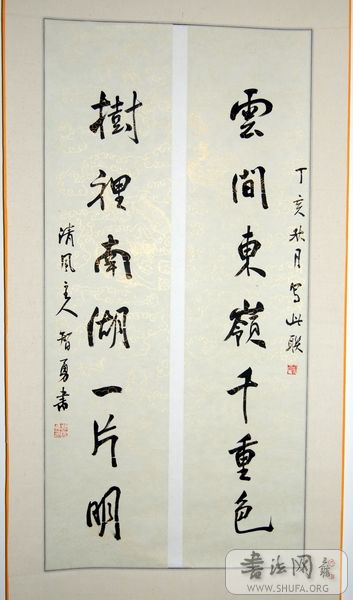 丁亥秋月写此联
雲間東嶺千重色
樹裡南湖一片明
清风主人智勇書
書法网
WWW.SHUFA.ORG